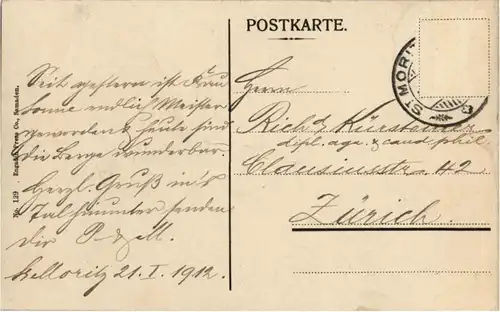 POSTKARTE.
ST. MORITZ
Seit gestern ist Frau
Sonne endlich Meister
geworden & heute sind
die Berge wunderbar.
Herzl. Gruß in's
Tal hinunter senden
Dir P. & M.
St. Moritz 21. I. 1912.
Herrn
Rich. Kürsteiner
dipl. agr. & cand. phil.
Clausiusstr. 42
Zürich.
No. 129 Engadin Press Co., Samaden.